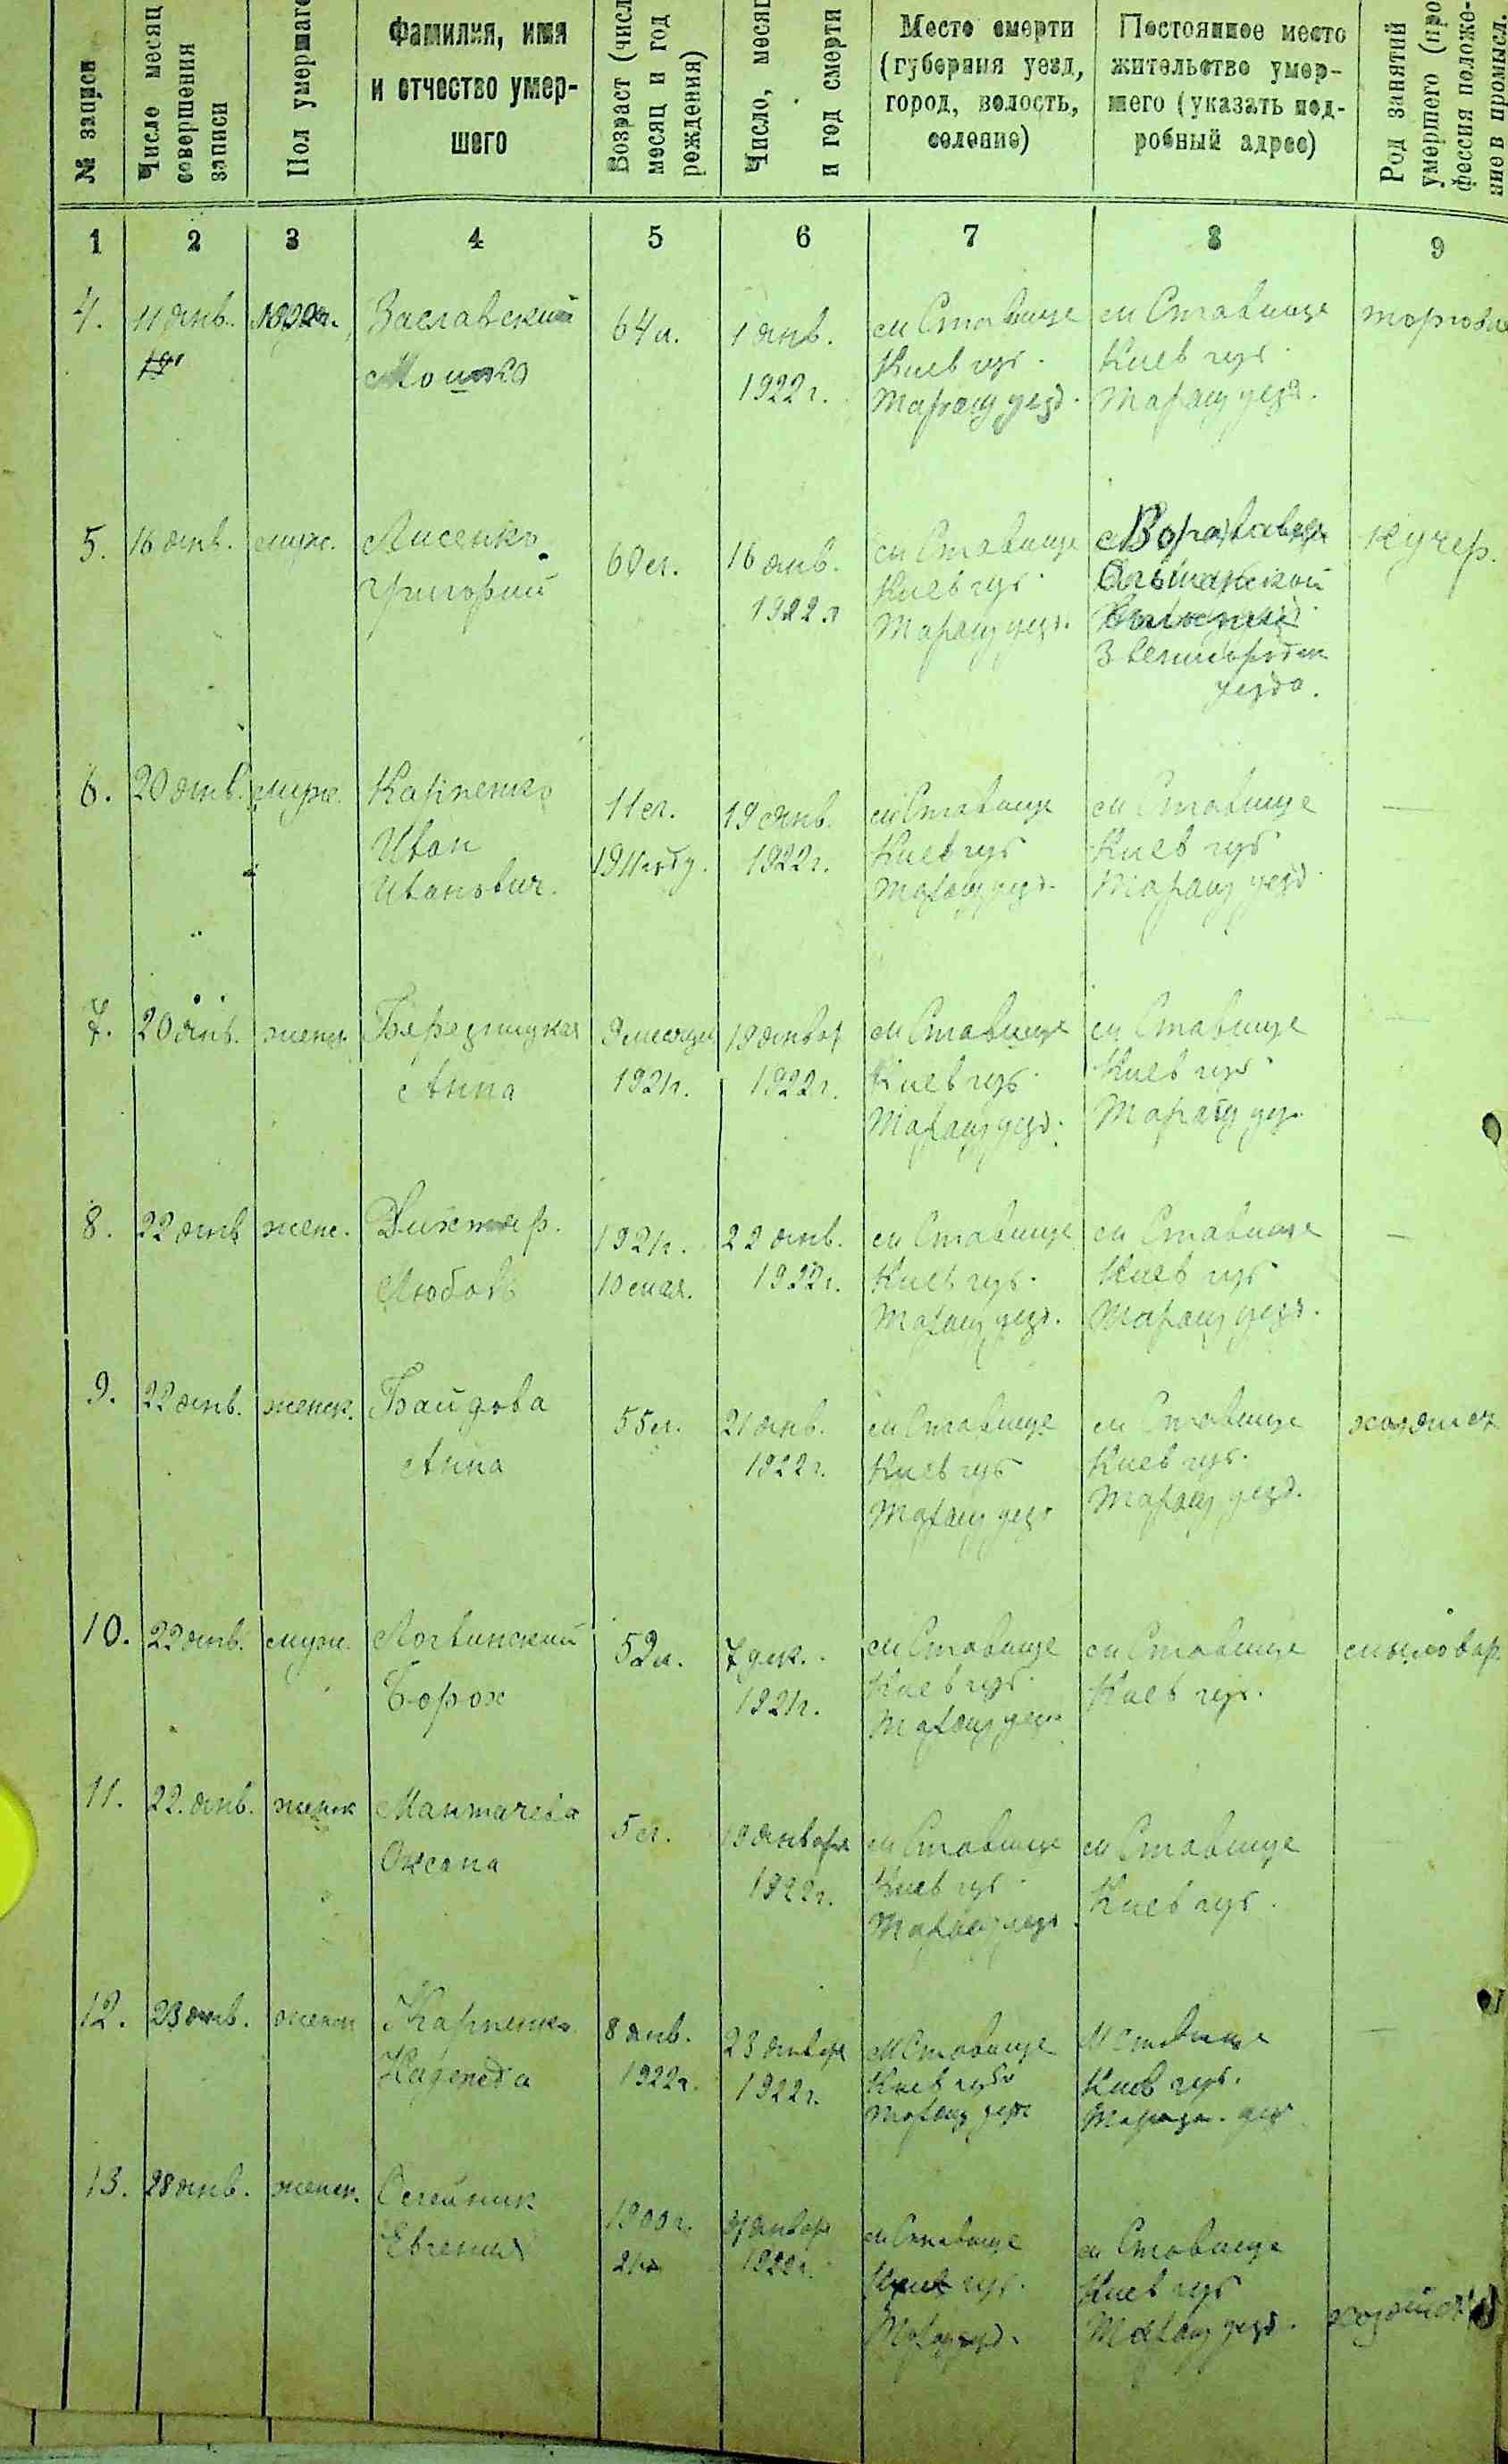 № записи
Число месяц
совершения
записи
Пол умершаго
Фамилия, имя
и отчество умер-
шаго
Возраст (число
месяц и год
рождения)
Число, месяц
и год смерти
Место смерти
(губерния уезд,
город, волость,
селение)
Постоянное место
жительство умер-
шего (указать под-
робный адрес)
Род занятий
умершего (про
фессия положе-
ние в промысл.
1 2 3 4 5 6 7 8 9
4. 11 янв. Заславский 64 л. 1 янв. м Ставище м Ставище торговля
Мошко 1922 г. Киев губ. Киев губ.
Таращ уезд. Таращ уезд.
5. 16 янв. муж. Лисенко 60 л. 16 янв. м Ставище кучер.
Григорий 1922 г. Киев губ.
Таращ уезд. Ольшанской
Звенигородск
уезда.
6. 20 янв. муж. Карпенко 11 л. 19 янв. м Ставище м Ставище —
Иван 1911 году. 1922 г. Киев губ Киев губ
Иванович. Таращ уезд. Таращ уезд.
7. 20 янв. женск. 9 месяцев 19 январ м Ставище м Ставище —
Анна 1921 г. 1922 г. Киев губ. Киев губ.
Таращ уезд. Таращ уез.
8. 22 янв женс. 1921 г. 22 янв. м Ставище м Ставище —
Любовь 10 мая. 1922 г. Киев губ. Киев губ
Таращ уезд. Таращ уезд.
9. 22 янв. женск. Байдова 55 л. 21 янв. м Ставище м Ставище
Анна 1922 г. Киев губ Киев губ.
Таращ уезд Таращ уезд.
10. 22 янв. муж. Логвинский 52 л. 7 дек. м Ставище м Ставище мыловар.
Борох 1921 г. Киев губ. Киев губ.
Таращ уезд
11. 22. янв. женск Мантачева 5 л. 19 января м Ставище м Ставище
Оксана 1922 г. Киев губ. Киев губ.
Таращ уезд.
12. 23 янв. женск Карпенко 8 янв. 23 января м Ставище М Ставище —
Надежда 1922 г. 1922 г. Киев губ Киев губ.
Таращ уезд
13. 28 янв. женск. Олейник 1900 г. м Ставище м Ставище
Евгения 1922 г. Киев губ. Киев губ
Таращ уезд.